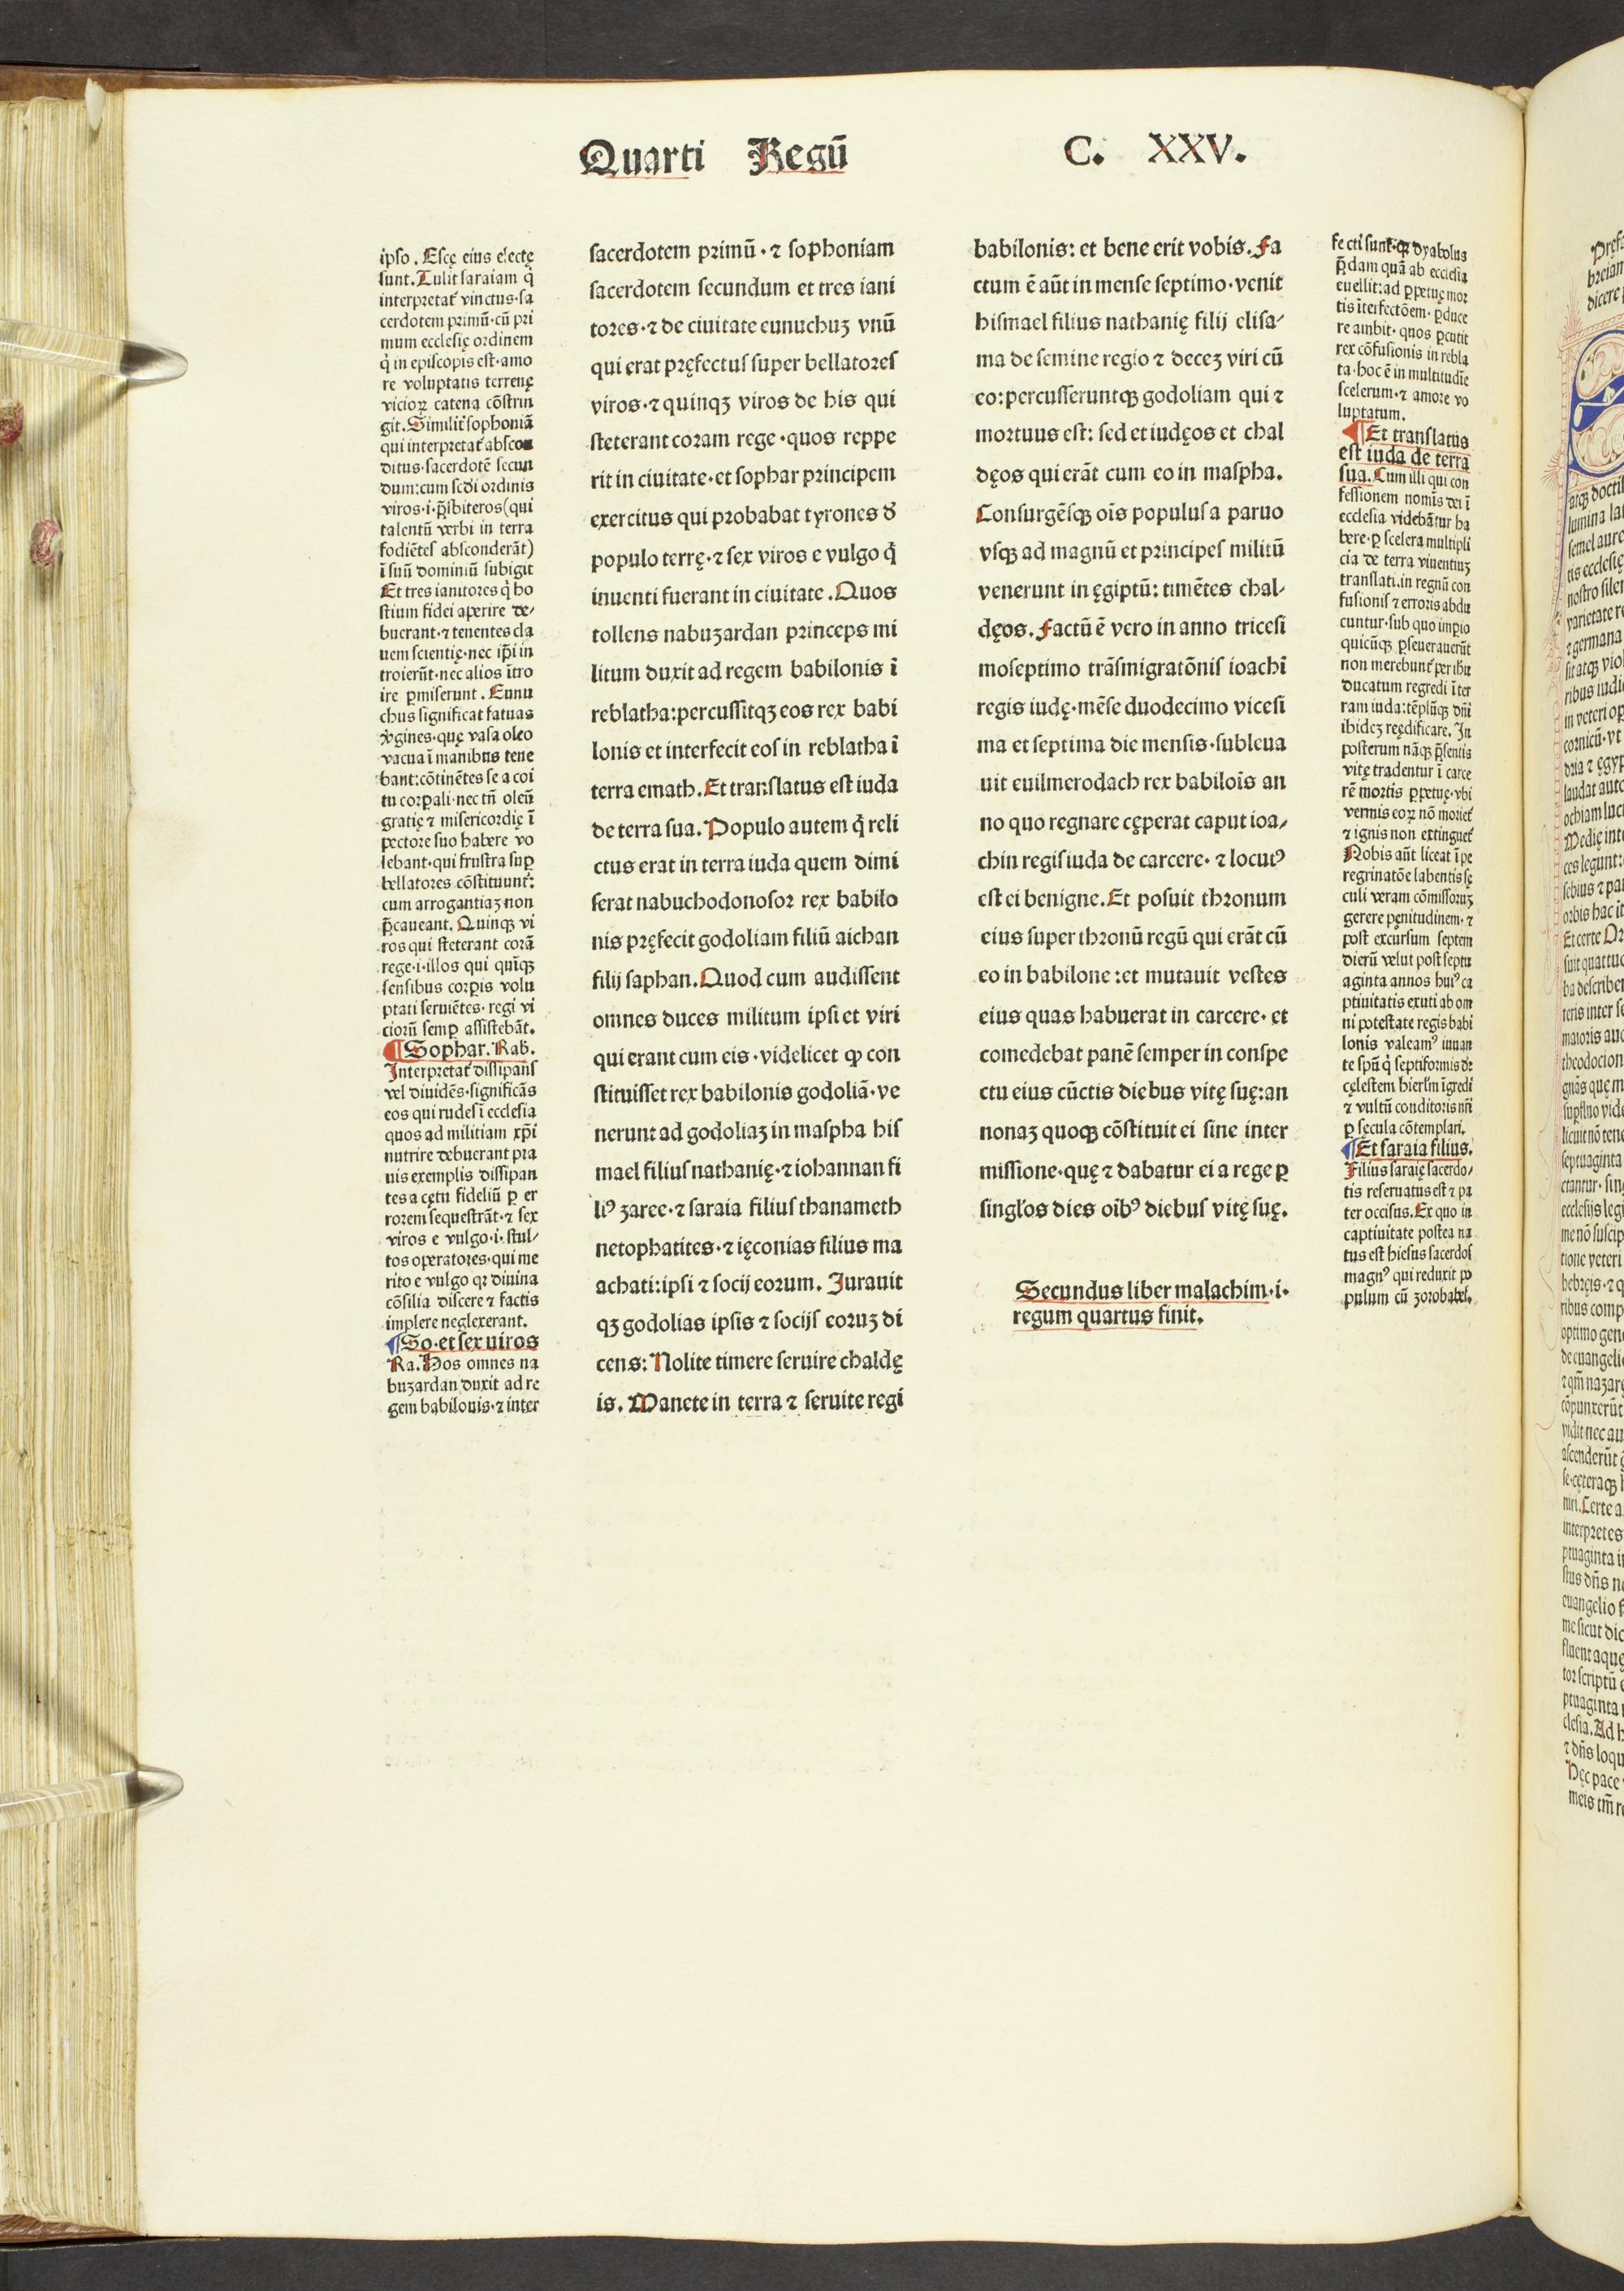 Quarti Regū C. XXV.
ip̄so . Escę eius electę
sunt. Tulit saraiam q̇
interpretat᷑ vinctus·sa
cerdotem primū·cū pri
mum ecclesię ordinem
q̇ in episcopis est·amo
re voluptatis terrenę
vicioꝝ catena cōstrin
git. Similit᷑ sophoniā
qui interpretat᷑ abscon
ditus·sacerdotē secun
dum:cum scdi ordinis
viros·i·p̄sbiteros(qui
talentū verbi in terra
fodiētes absconderāt)
ī suū dominiū subigit
Et tres ianitores q̇ ho
stium fidei aperire de⸗
buerant·⁊ tenentes cla
uem scientię·nec ip̄i in
troierūt·nec alios ītro
ire ꝑmiserunt . Eunu
chus significat fatuas
v̇gines·quę vasa oleo
vacua ī manibus tene
bant:cōtinētes se a coi
tu corꝑali·nec tn̄ oleū
gratię ⁊ misericordię ī
pectore suo habere vo
lebant·qui frustra suꝑ
bellatores cōstituunt᷑:
cum arrogantiaꝫ non
p̄caueant. Quinqꝫ vi
ros qui steterant corā
rege·i·illos qui quīqꝫ
sensibus corꝑis volu
ptati seruiētes· regi vi
ciorū semꝑ assistebāt.
¶Sophar. Rab.
Interpretat᷑ dissipans
vel diuidēs·significās
eos qui rudes ī ecclesia
quos ad militiam xp̄i
nutrire debuerant pra
uis exemplis dissipan
tes a cętu fideliū ꝑ er
rorem sequestrāt·⁊ sex
viros e vulgo·i·stul⸗
tos operatores·qui me
rito e vulgo qꝛ diuina
cōsilia discere ⁊ factis
implere neglexerant.
¶So·et sex uiros
Ra. Hos omnes na
buzardan duxit ad re
gem babilonis·⁊ inter
sacerdotem primū·⁊ sophoniam
sacerdotem secundum et tres iani
tores·⁊ de ciuitate eunuchuꝫ vnū
qui erat pręfectus super bellatores
viros·⁊ quinqꝫ viros de his qui
steterant coram rege·quos reppe
rit in ciuitate·et sophar principem
exercitus qui probabat tyrones đ
populo terrę·⁊ sex viros e vulgo q̇
inuenti fuerant in ciuitate . Quos
tollens nabuzardan princeps mi
litum duxit ad regem babilonis ī
reblatha:percussitqꝫ eos rex babi
lonis et interfecit eos in reblatha ī
terra emath. Et translatus est iuda
de terra sua. Populo autem q̇ reli
ctus erat in terra iuda quem dimi
serat nabuchodonosor rex babilo
nis pręfecit godoliam filiū aichan
filij saphan. Quod cum audissent
omnes duces militum ipsi et viri
qui erant cum eis·videlicet ꝙ con
stituisset rex babilonis godoliā·ve
nerunt ad godoliaꝫ in maspha his
mael filius nathanię·⁊ iohannan fi
liꝰ zaree·⁊ saraia filius thanameth
netophatites·⁊ ięconias filius ma
achati:ipsi ⁊ socij eorum. Iurauit
qꝫ godolias ipsis ⁊ socijs eoruꝫ di
cens: Nolite timere seruire chaldę
is. Manete in terra ⁊ seruite regi
babilonis: et bene erit vobis. Fa
ctum ē aūt in mense septimo·venit
hismael filius nathanię filij elisa⸗
ma de semine regio ⁊ deceꝫ viri cū
eo:percusseruntqꝫ godoliam qui ⁊
mortuus est: sed et iudęos et chal
dęos qui erāt cum eo in maspha.
Consurgēsqꝫ oīs populus a paruo
vsqꝫ ad magnū et principes militū
venerunt in ęgiptū: timētes chal⸗
dęos. Factū ē vero in anno tricesi
moseptimo trāsmigratōnis ioachī
regis iudę·mēse duodecimo vicesi
ma et septima die mensis·subleua
uit euilmerodach rex babiloīs an
no quo regnare cęperat caput ioa⸗
chin regis iuda de carcere· ⁊ locutꝰ
est ei benigne. Et posuit thronum
eius super thronū regū qui erāt cū
eo in babilone :et mutauit vestes
eius quas habuerat in carcere· et
comedebat panē semper in conspe
ctu eius cūctis diebus vitę suę:an
nonaꝫ quoqꝫ cōstituit ei sine inter
missione·quę ⁊ dabatur ei a rege ꝑ
singl'os dies oībꝰ diebus vitę suę.
Secundus liber malachim·i·
regum quartus finit.
fecti sunt·qꝛ dyabolus
p̄dam quā ab ecclesia
euellit:ad ꝑpetuę mor
tis īterfectōem· ꝑduce
re ambit· quos ꝑcutit
rex cōfusionis in rebla
ta·hoc ē in multitudīe
scelerum·⁊ amore vo
luptatum.
¶Et translatus
est iuda de terra
sua. Cum illi qui con
fessionem nomīs dei ī
ecclesia videbātur ha
bere·ꝑ scelera multipli
cia de terra viuentiuꝫ
translati·in regnū con
fusionis ⁊ erroris abdu
cuntur·sub quo imꝑio
quicūqꝫ ꝑseuerauerūt
non merebunt᷑ per ihū
ducatum regredi ī ter
ram iuda:tēplūqꝫ dn̄i
ibideꝫ reędificare. In
posterum nāqꝫ p̄sentis
vitę tradentur ī carce
rē mortis ꝑpetuę·vbi
vermis eoꝝ nō moriet᷑
⁊ ignis non extinguet᷑
Nobis aūt liceat ī pe
regrinatōe labentis sę
culi veram cōmissoruꝫ
gerere pęnitudinem·⁊
post excursum septem
dierū velut post septu
aginta annos huiꝰ ca
ptiuitatis exuti ab om
ni potestate regis babi
lonis valeamꝰ iuuan
te spū q̇ septiformis dr̄
cęlestem hierl'm īgredi
⁊ vultū conditoris nr̄i
ꝑ sęcula cōtemplari.
¶Et saraia filius.
Filius saraię sacerdo⸗
tis reseruatus est ⁊ pa
ter occisus. Ex quo in
captiuitate postea na
tus est hiesus sacerdos
magnꝰ qui reduxit po
pulum cū zorobabel.